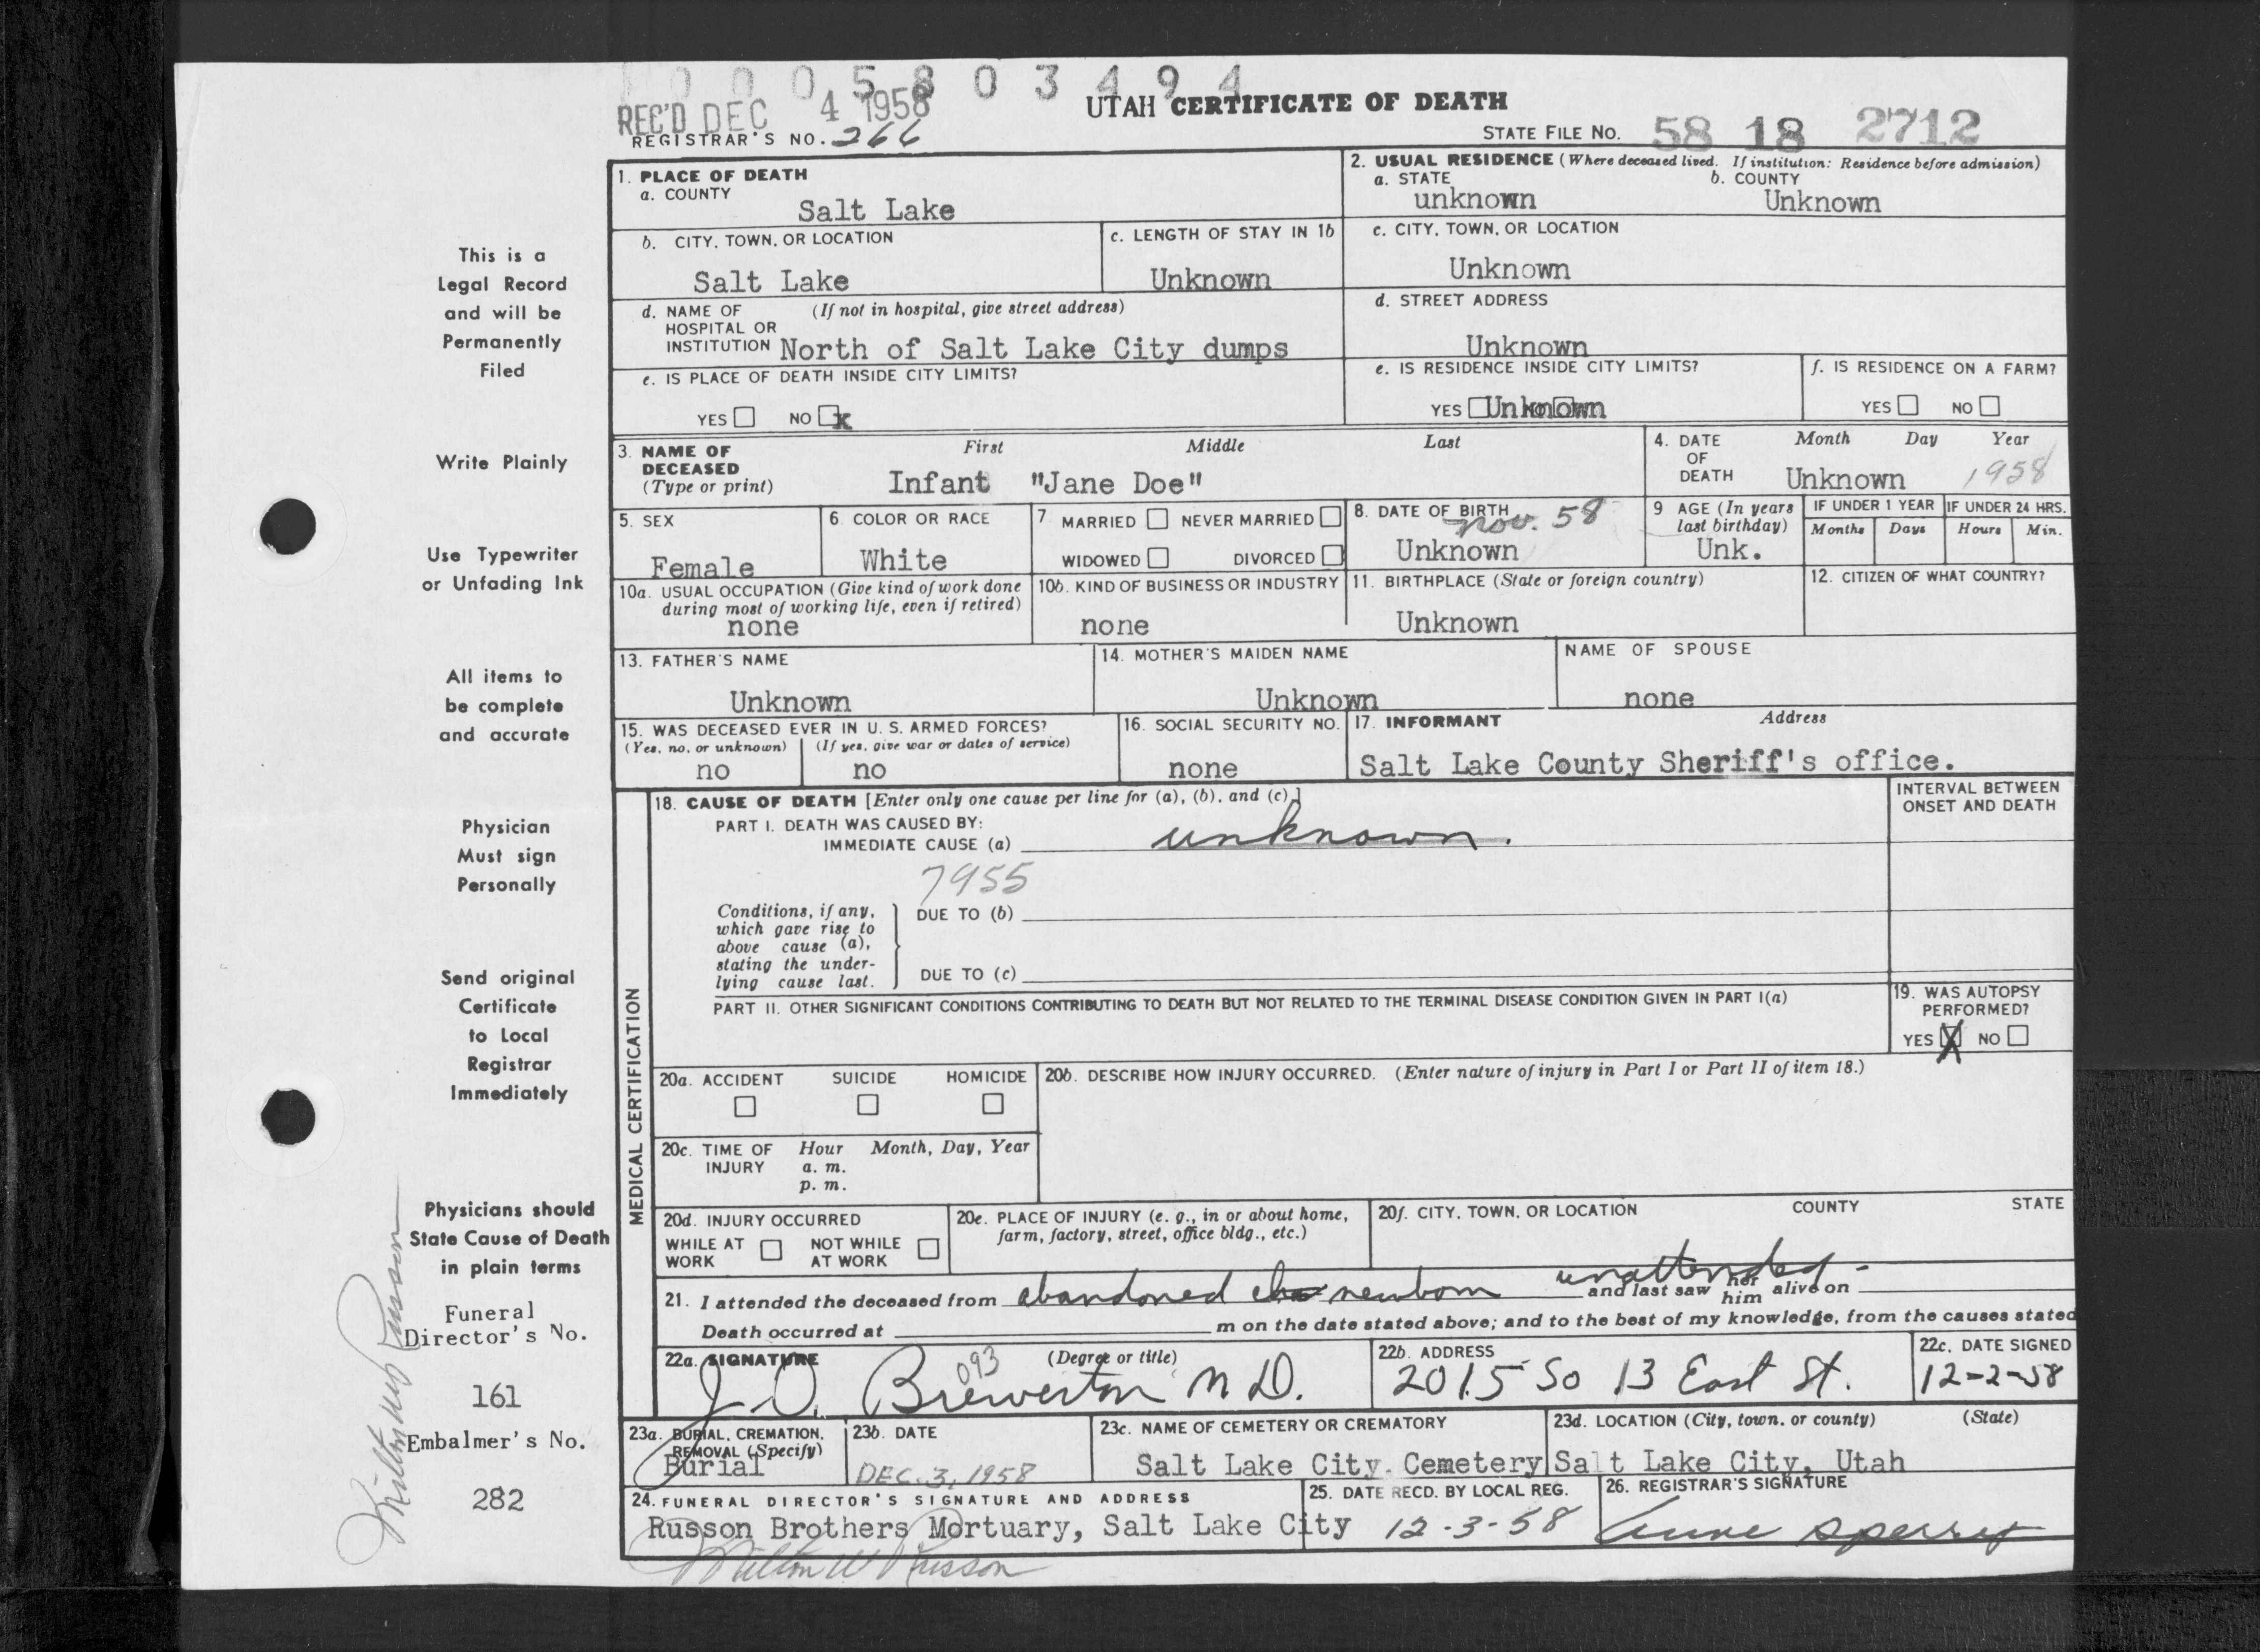 0 0 0 5 8 0 3 4 9 4
REC'D DEC 4 1958
UTAH CERTIFICATE OF DEATH
REGISTRAR'S NO. 266
STATE FILE NO. 58 18 2712
This is a
Legal Record
and will be
Permanently
Filed
Write Plainly
Use Typewriter
or Unfading Ink
All items to
be complete
and accurate
Physician
Must sign
Personally
Send original
Certificate
to Local
Registrar
Immediately
Physicians should
State Cause of Death
in plain terms
Funeral
Director's No.
161
Embalmer's No.
282
Milton W Russon
1. PLACE OF DEATH
a. COUNTY
Salt Lake
2. USUAL RESIDENCE (Where deceased lived. If institution: Residence before admission)
a. STATE
unknown
b. COUNTY
Unknown
b. CITY, TOWN, OR LOCATION
Salt Lake
c. LENGTH OF STAY IN 1b
Unknown
c. CITY, TOWN, OR LOCATION
Unknown
d. NAME OF (If not in hospital, give street address)
HOSPITAL OR
INSTITUTION North of Salt Lake City dumps
d. STREET ADDRESS
Unknown
e. IS PLACE OF DEATH INSIDE CITY LIMITS?
YES NO x
e. IS RESIDENCE INSIDE CITY LIMITS?
YES Unknown
f. IS RESIDENCE ON A FARM?
YES NO
3. NAME OF
DECEASED
(Type or print)
First Middle Last
Infant "Jane Doe"
4. DATE
OF
DEATH
Month Day Year
Unknown 1958
5. SEX
Female
6. COLOR OR RACE
White
7. MARRIED NEVER MARRIED
WIDOWED DIVORCED
8. DATE OF BIRTH
Nov. 58
Unknown
9 AGE (In years
last birthday)
Unk.
IF UNDER 1 YEAR
Months Days
IF UNDER 24 HRS.
Hours Min.
10a. USUAL OCCUPATION (Give kind of work done
during most of working life, even if retired)
none
10b. KIND OF BUSINESS OR INDUSTRY
none
11. BIRTHPLACE (State or foreign country)
Unknown
12. CITIZEN OF WHAT COUNTRY?
13. FATHER'S NAME
Unknown
14. MOTHER'S MAIDEN NAME
Unknown
NAME OF SPOUSE
none
15. WAS DECEASED EVER IN U. S. ARMED FORCES?
(Yes, no, or unknown) (If yes, give war or dates of service)
no no
16. SOCIAL SECURITY NO.
none
17. INFORMANT Address
Salt Lake County Sheriff's office.
MEDICAL CERTIFICATION
18. CAUSE OF DEATH [Enter only one cause per line for (a), (b), and (c).]
PART I. DEATH WAS CAUSED BY:
IMMEDIATE CAUSE (a) unknown.
7955
INTERVAL BETWEEN
ONSET AND DEATH
Conditions, if any,
which gave rise to
above cause (a),
stating the under-
lying cause last.
DUE TO (b)
DUE TO (c)
PART II. OTHER SIGNIFICANT CONDITIONS CONTRIBUTING TO DEATH BUT NOT RELATED TO THE TERMINAL DISEASE CONDITION GIVEN IN PART I(a)
19. WAS AUTOPSY
PERFORMED?
YES X NO
20a. ACCIDENT SUICIDE HOMICIDE
20b. DESCRIBE HOW INJURY OCCURRED. (Enter nature of injury in Part I or Part II of item 18.)
20c. TIME OF INJURY
Hour Month, Day, Year
a. m.
p. m.
20d. INJURY OCCURRED
WHILE AT WORK
NOT WHILE AT WORK
20e. PLACE OF INJURY (e. g., in or about home,
farm, factory, street, office bldg., etc.)
20f. CITY, TOWN, OR LOCATION COUNTY STATE
21. I attended the deceased from abandoned newborn unattended - and last saw her him alive on
Death occurred at m on the date stated above; and to the best of my knowledge, from the causes stated
22a. SIGNATURE (Degree or title)
093
J. O. Brewerton M D.
22b. ADDRESS
2015 So 13 East St.
22c. DATE SIGNED
12-2-58
23a. BURIAL, CREMATION,
REMOVAL (Specify)
Burial
23b. DATE
DEC. 3, 1958
23c. NAME OF CEMETERY OR CREMATORY
Salt Lake City. Cemetery
23d. LOCATION (City, town, or county) (State)
Salt Lake City, Utah
24. FUNERAL DIRECTOR'S SIGNATURE AND ADDRESS
Russon Brothers Mortuary, Salt Lake City
Milton W Russon
25. DATE RECD. BY LOCAL REG.
12-3-58
26. REGISTRAR'S SIGNATURE
Anne Sperry